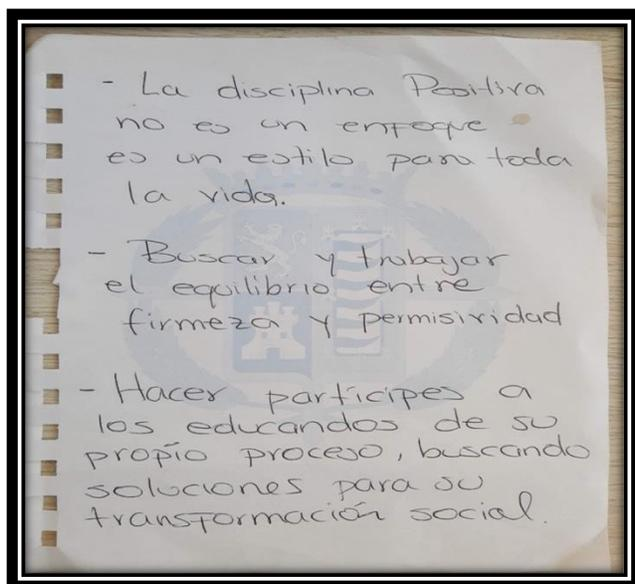 - La disciplina Positiva
no es un enfoque
es un estilo para toda
la vida.
- Buscar y trabajar
el equilibrio entre
firmeza y permisividad
- Hacer partícipes a
los educandos de su
propio proceso, buscando
soluciones para su
transformación social.